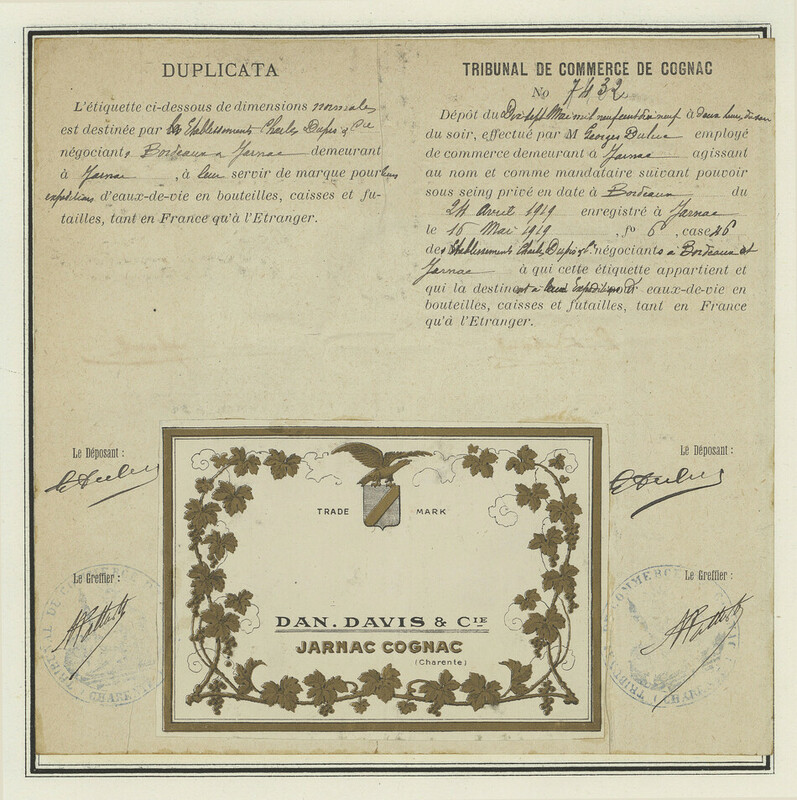 DUPLICATA
L'étiquette ci-dessous de dimensions normales
est destinée par les Etablissements Charles Dupis & Cie
négociants Bordeaux & Jarnac demeurant
à Jarnac, à leur servir de marque pour leurs
expéditions d'eaux-de-vie en bouteilles, caisses et fu-
tailles, tant en France qu'à l'Etranger.
TRIBUNAL DE COMMERCE DE COGNAC
No 7432
Dépôt du Dix sept Mai mil neuf cent dix neuf à deux heures
du soir, effectué par M Georges employé
de commerce demeurant à Jarnac agissant
au nom et comme mandataire suivant pouvoir
sous seing privé en date à Bordeaux du
24 Avril 1919 enregistré à Jarnac
le 16 Mai 1919, fo 6, case 46
des Etablissements Charles Dupis & Cie négociants à Bordeaux et
Jarnac à qui cette étiquette appartient et
qui la destinent à leurs expéditions d' eaux-de-vie en
bouteilles, caisses et futailles, tant en France
qu'à l'Etranger.
Le Déposant :
Le Déposant :
Le Greffier :
Le Greffier :
TRIBUNAL DE COMMERCE
CHARENTE
TRADE MARK
DAN. DAVIS & CIE
JARNAC COGNAC
(Charente)